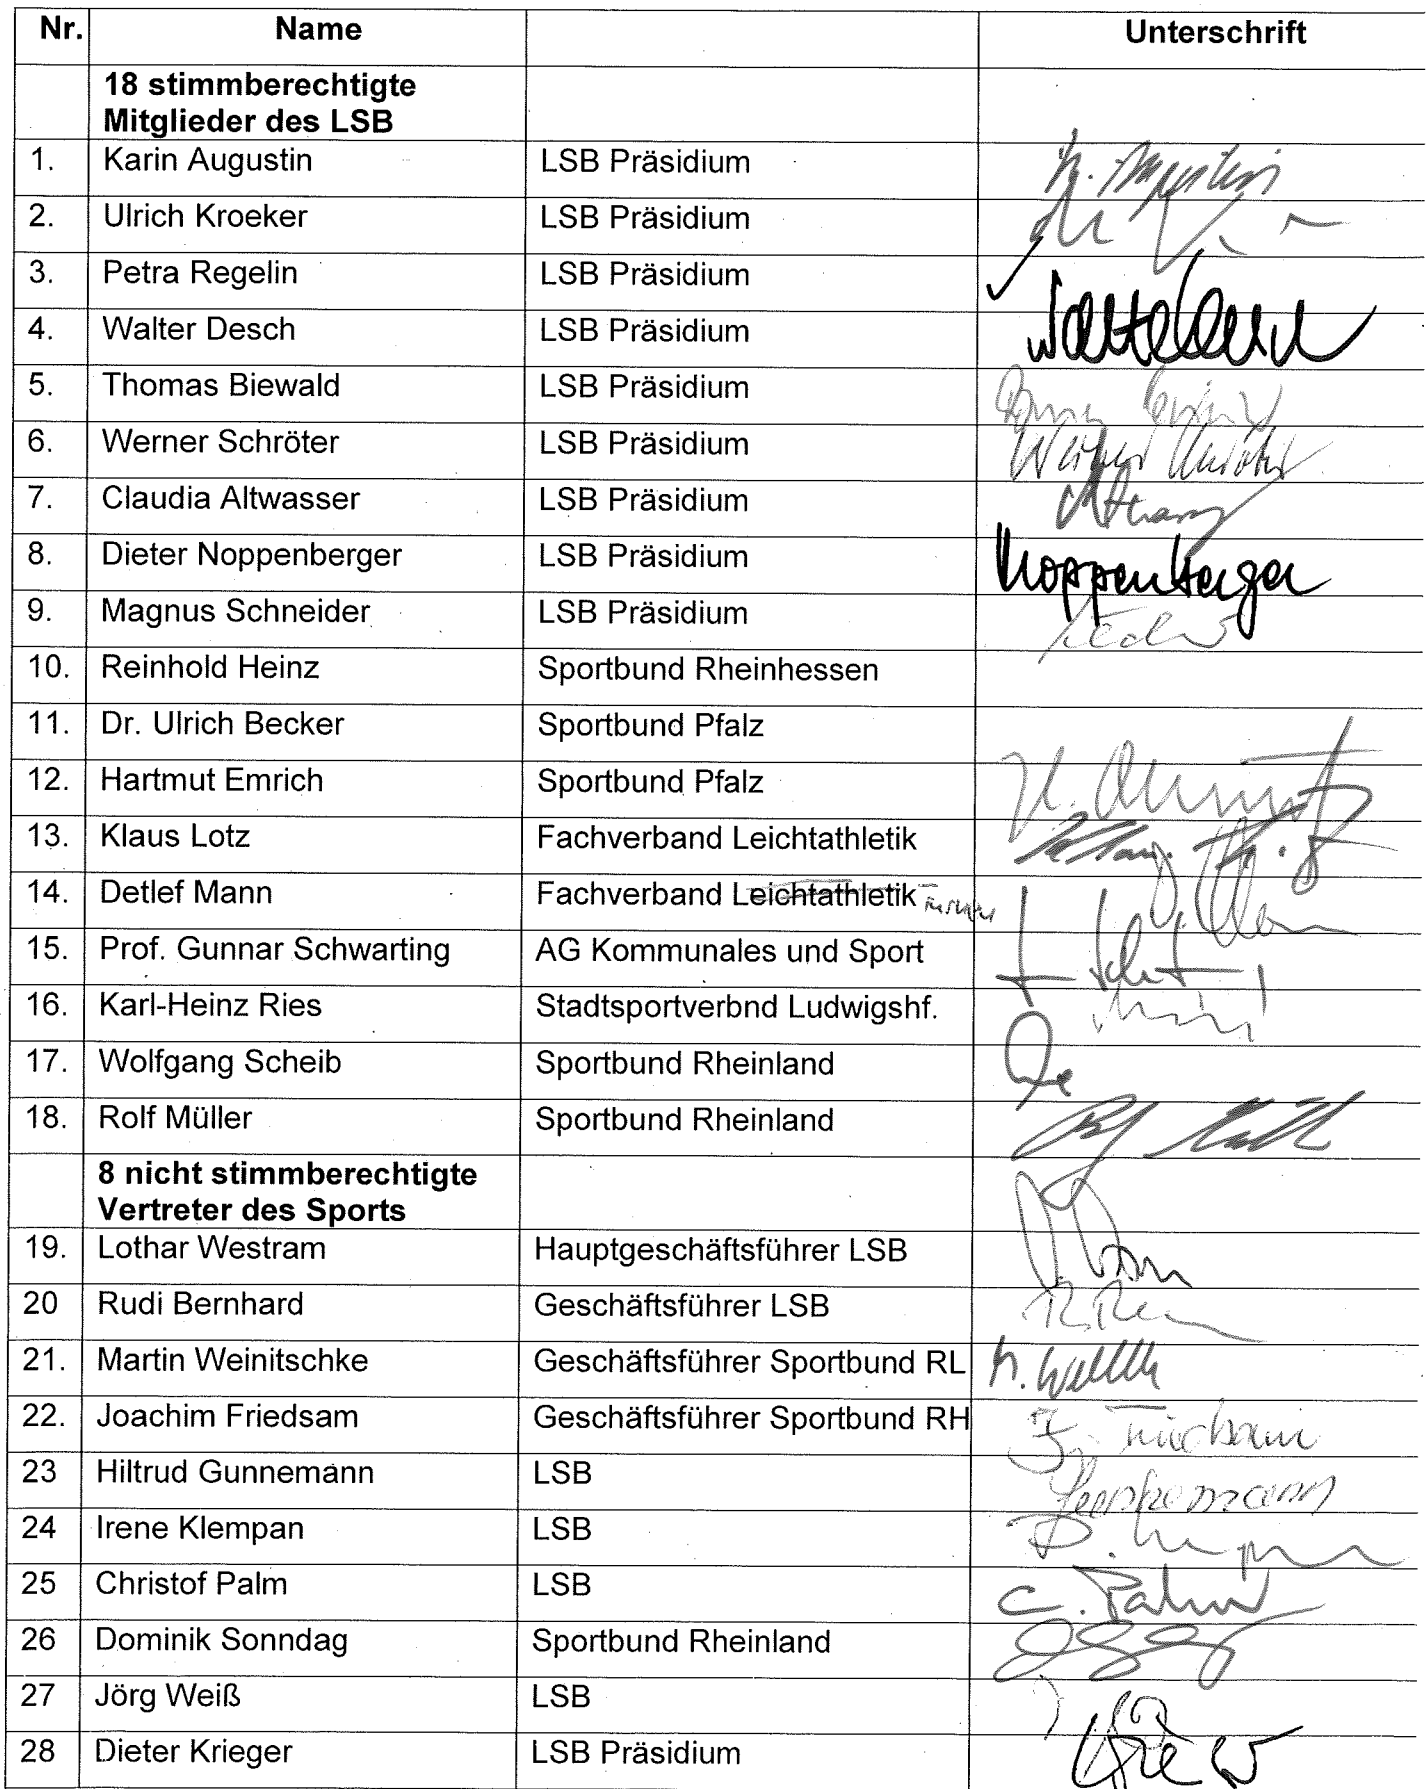 Nr. Name Unterschrift
18 stimmberechtigte
Mitglieder des LSB
1. Karin Augustin LSB Präsidium
2. Ulrich Kroeker LSB Präsidium
3. Petra Regelin LSB Präsidium
4. Walter Desch LSB Präsidium
5. Thomas Biewald LSB Präsidium
6. Werner Schröter LSB Präsidium
7. Claudia Altwasser LSB Präsidium
8. Dieter Noppenberger LSB Präsidium Noppenberger
9. Magnus Schneider LSB Präsidium
10. Reinhold Heinz Sportbund Rheinhessen
11. Dr. Ulrich Becker Sportbund Pfalz
12. Hartmut Emrich Sportbund Pfalz
13. Klaus Lotz Fachverband Leichtathletik
14. Detlef Mann Fachverband Leichtathletik Turnen
15. Prof. Gunnar Schwarting AG Kommunales und Sport
16. Karl-Heinz Ries Stadtsportverbnd Ludwigshf.
17. Wolfgang Scheib Sportbund Rheinland
18. Rolf Müller Sportbund Rheinland
8 nicht stimmberechtigte
Vertreter des Sports
19. Lothar Westram Hauptgeschäftsführer LSB
20 Rudi Bernhard Geschäftsführer LSB
21. Martin Weinitschke Geschäftsführer Sportbund RL
22. Joachim Friedsam Geschäftsführer Sportbund RH
23 Hiltrud Gunnemann LSB
24 Irene Klempan LSB
25 Christof Palm LSB C. Palm
26 Dominik Sonndag Sportbund Rheinland
27 Jörg Weiß LSB
28 Dieter Krieger LSB Präsidium